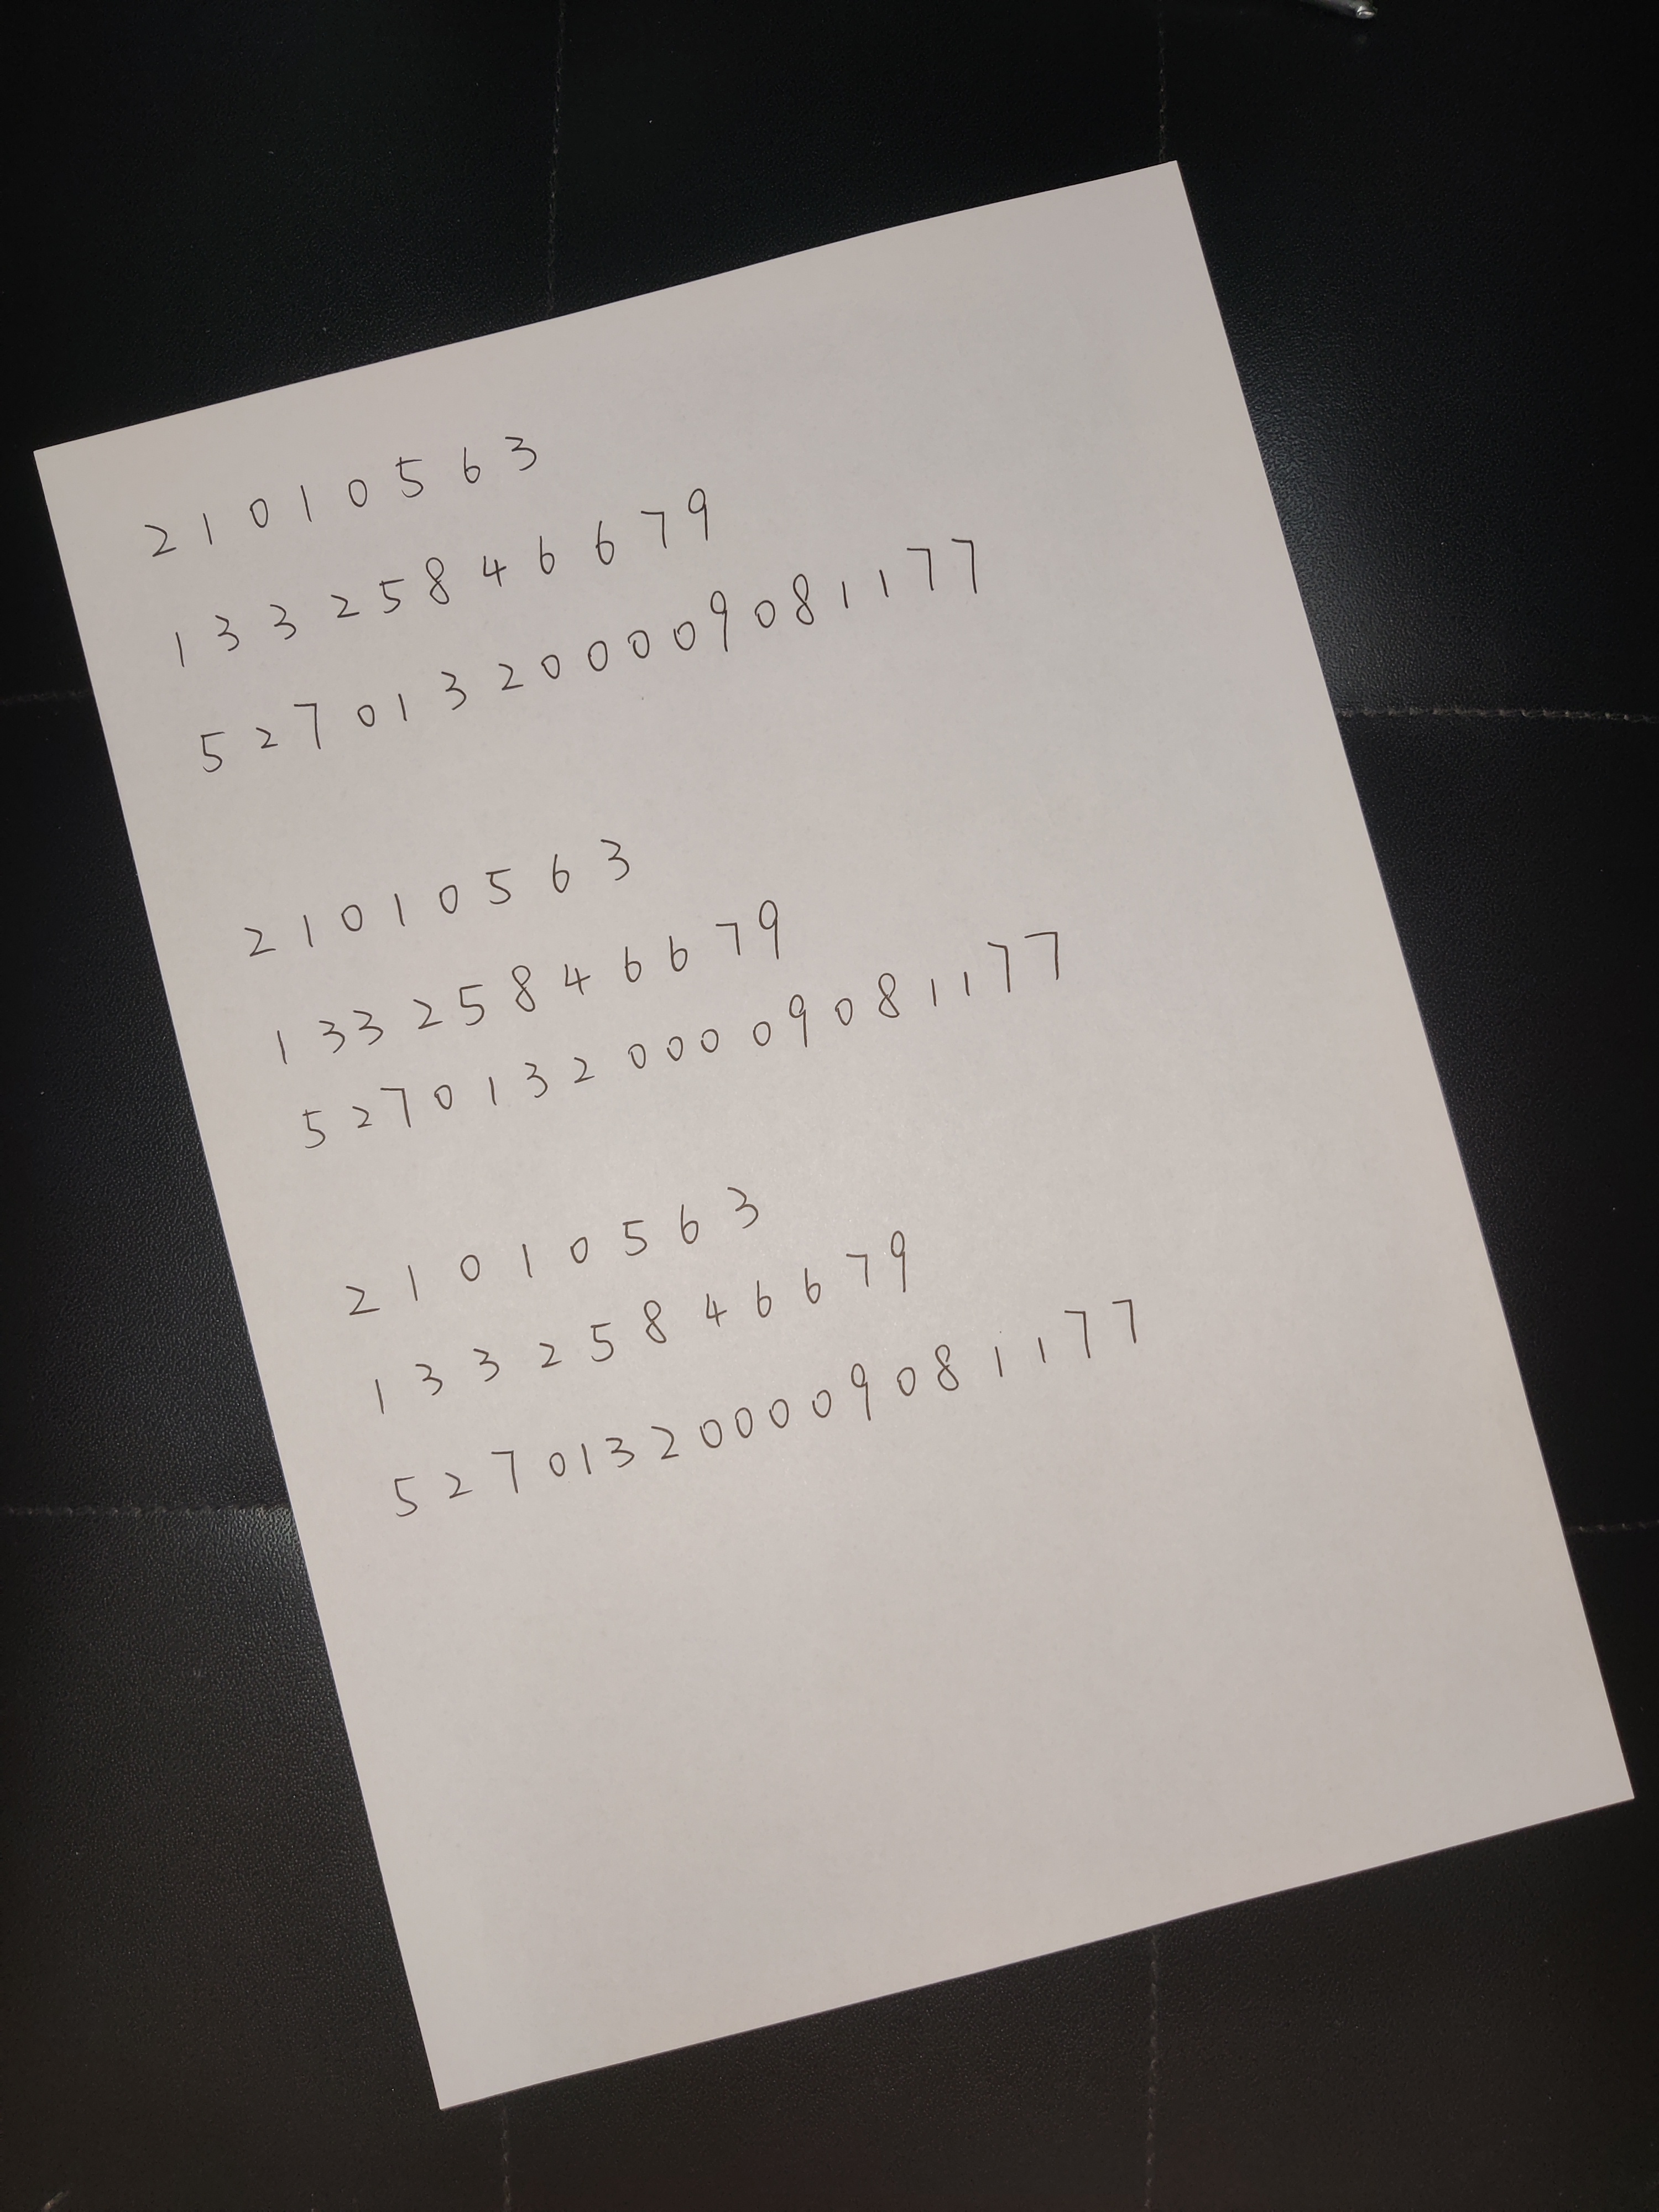 2 1 0 1 0 5 6 3
1 3 3 2 5 8 4 6 6 7 9
5 2 7 0 1 3 2 0 0 0 0 9 0 8 1 1 7 7
2 1 0 1 0 5 6 3
1 3 3 2 5 8 4 6 6 7 9
5 2 7 0 1 3 2 0 0 0 0 9 0 8 1 1 7 7
2 1 0 1 0 5 6 3
1 3 3 2 5 8 4 6 6 7 9
5 2 7 0 1 3 2 0 0 0 0 9 0 8 1 1 7 7